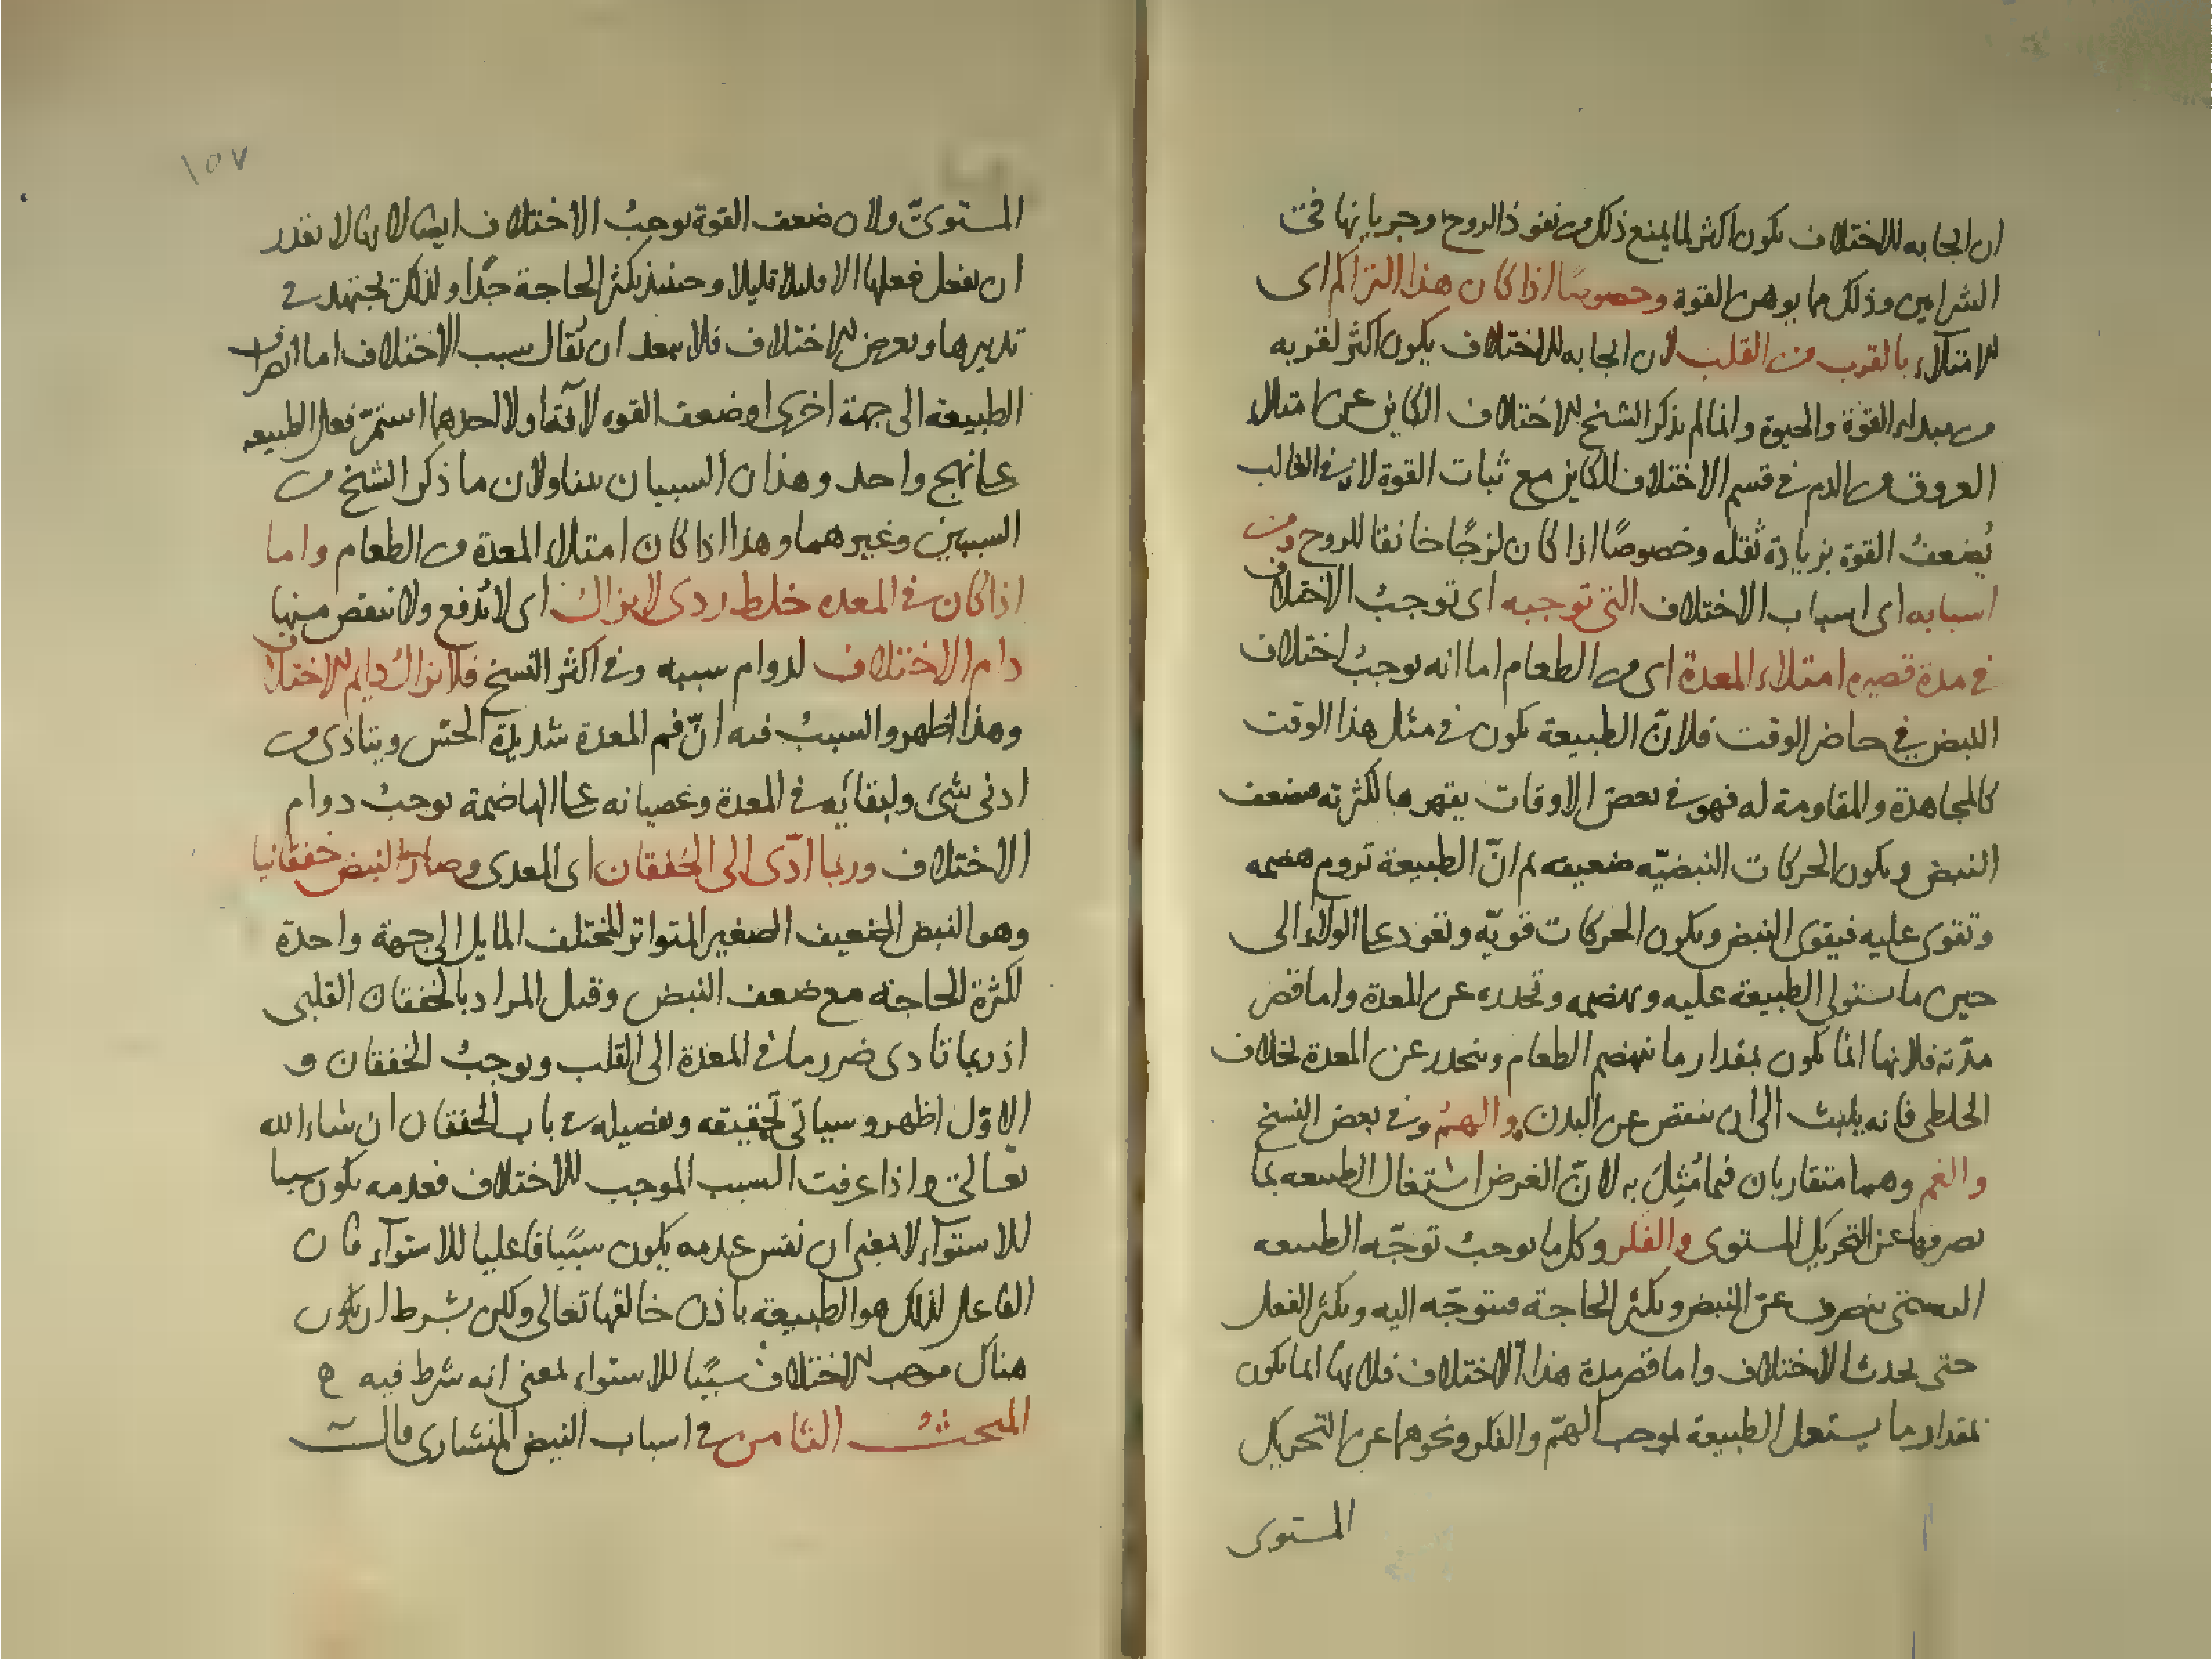 ان ايجابه للاختلاف يكون اكثر لما يمنع ذلك من نفوذ الروح وجريانها في
الشرايين وذلك مما يوهن القوة وخصوصًا اذا كان هذا التراكم اى
الامتلاء بالقرب من القلب لان ايجابه للاختلاف يكون اكثر لقربه
من مبداء القوة والحيوة وانما لم يذكر الشيخ الاختلاف الكاين عن امتلاء
العروق من الدم فى قسم الاختلاف الكاين مع ثبات القوة لانه فى الغالب
يُضعفُ القوة بزيادة ثقله وخصوصًا اذا كان لزجًا خانقا للروح ومن
اسبابه اى اسباب الاختلاف التى توجبه اى توجبُ الاختلاف
فى مدة قصيره امتلاء المعدة اى من الطعام اما انه يوجبُ اختلاف
النبض في حاضر الوقت فلانّ الطبيعة تكون فى مثل هذا الوقت
كالمجاهدة والمقاومة له فهو فى بعض الاوقات يقهرها لكثرته فيضعف
النبض ويكون الحركات النبضيّه ضعيفه ثم انّ الطبيعة تروم هضمه
وتقوى عليه فيقوى النبض ويكون الحركات قويّه وتعود على الولاء الى
حين ما يستولى الطبيعة عليه ويهضمه وتحدره عن المعدة واما قصر
مدّته فلانها انما تكون بمقدار ما ينهضم الطعام وينحدر عن المعدة بخلاف
الخلطى فانه يلبث الى ان ينقص عن البدن والهمُ وفى بعض النسخ
والغم وهما متقاربان فيما مُثِلَ به لانّ الغرض اشتغال الطبيعه بما
يصرفها عن التحريك المستوى والفكر وكل ما يوجبُ توجّه الطبيعه
ينصرف عن النبض ويكثر الحاجة فيتوجّه اليه ويكثر الفعل
حتى يحدث الاختلاف واما قصر مدة هذا الاختلاف فلانها انما يكون
بمقدار ما يشتغل الطبيعة بموجب الهمّ والفكر ونحوهما عن التحريك
المستوى
١٥٧
المستوىّ ولان ضعف القوة يوجبُ الاختلاف ايضا لانها لا تقدر
ان تفعل فعلها الا قليلا قليلا وحينئذ يكثر الحاجة جدًا ولذلك تجتهد فى
تدبيرها ويعرض الاختلاف فلا يبعد ان يُقال سبب الاختلاف اما انصراف
الطبيعة الى جهة اخرى او ضعف القوه لآفة اولا احدهما استمرّ فعل الطبيعه
على نهج واحد وهذان السببان يتناولان ما ذكر الشيخ من
السببين وغيرهما وهذا اذا كان امتلاء المعدة من الطعام واما
اذا كان فى المعده خلط ردى لا يزالُ اى لا يُدفع ولا ينتقص منها
دام الاختلاف لدوام سببه وفى اكثر النسخ فلا يزالُ دايم الاختلاف
وهذا اظهر والسببُ فيه انّ فم المعدة شديدة الحسّ ويتاذى من
ادنى شىَ ولبقائه فى المعدة وعصيانه على الهاضمة يوجبُ دوام
الاختلاف وربما ادّى الى الخفقان اى المعدى وصار النبض خفقانيا
وهو النبض الضعيف الصغير المتواتر المختلف المايل الى جهة واحدة
لكثرة الحاجة مع ضعف النبض وقيل المراد بالخفقان القلبى
اذ ربما تادى ضرر ما فى المعدة الى القلب ويوجبُ الخفقان و
الاوّل اظهر وسياتى تحقيقه وتفصيله فى باب الخفقان ان شاء الله
تعالى واذا عرفت السبب الموجب للاختلاف فعدمه يكون سببا
للاستوآء لا بمعنى ان نفس عدمه يكون سببًا فاعليا للاستوآء فان
الفاعل لذلك هو الطبيعة باذن خالقها تعالى ولكن بشرط ان يكون
هناك موجب الاختلاف سببًا للاستواء بمعنى انه شرط فيه
المبحثُ الثامن فى اسباب النبض المنشارى قالَ